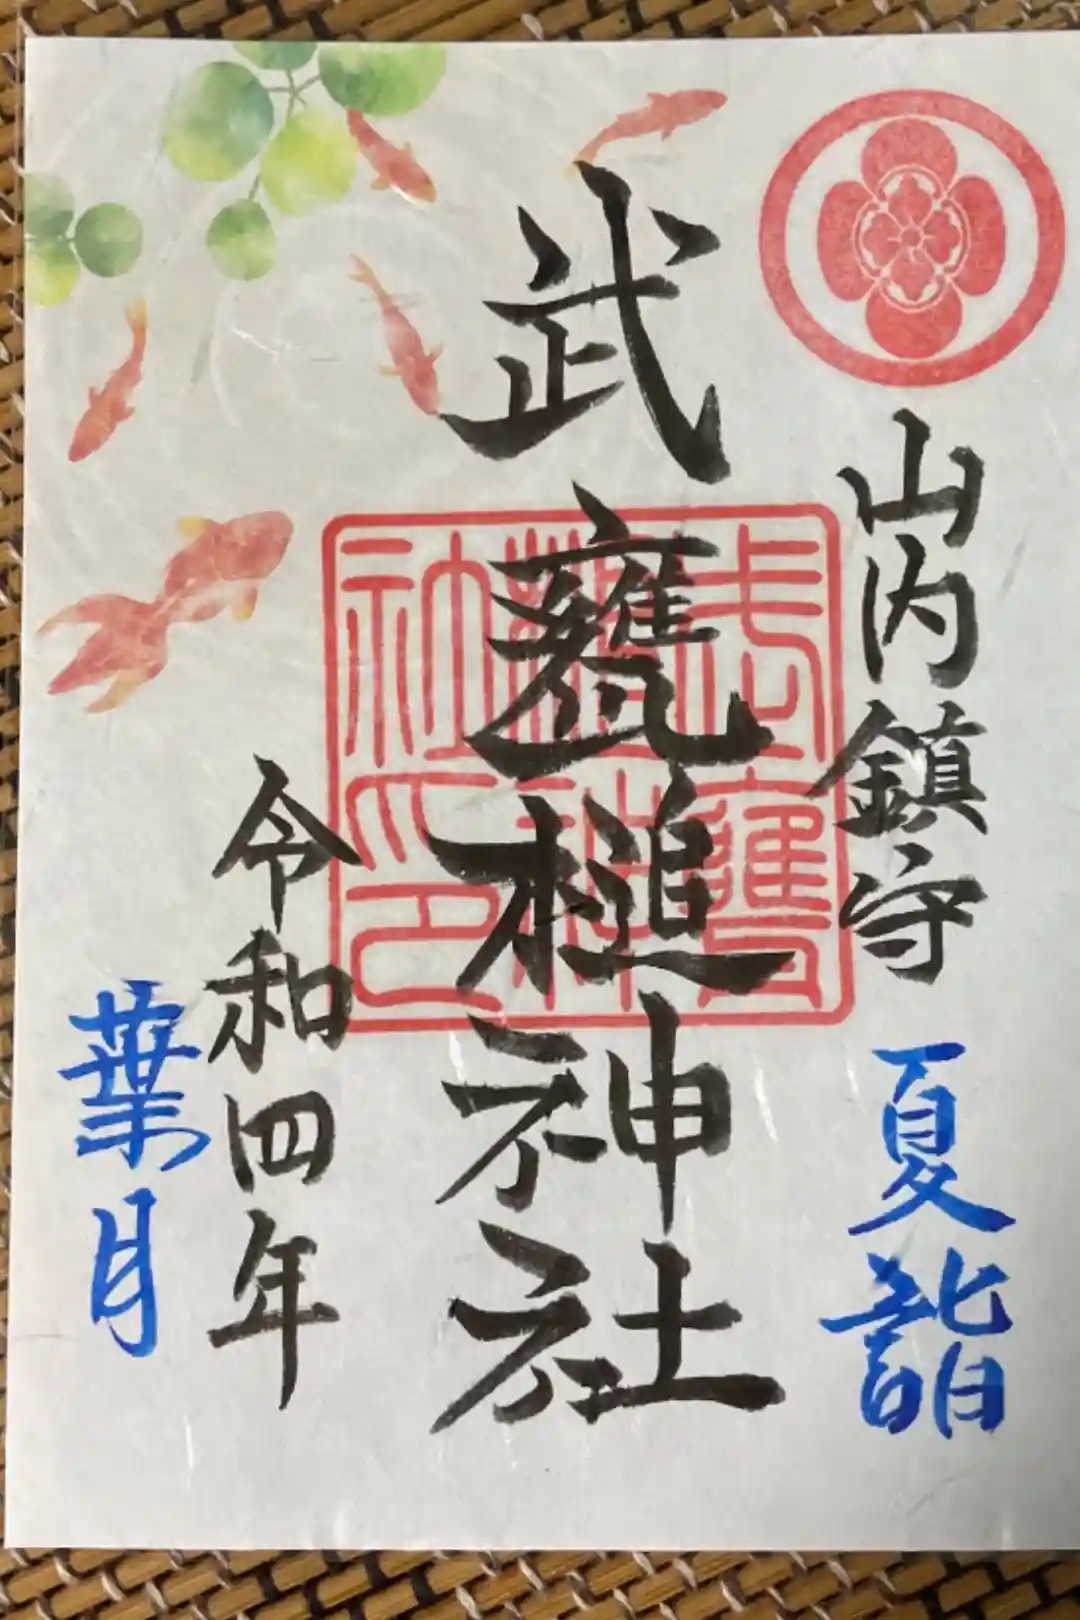 山内鎮守
夏詣
武甕槌神社
武甕槌神社印
令和四年
葉月